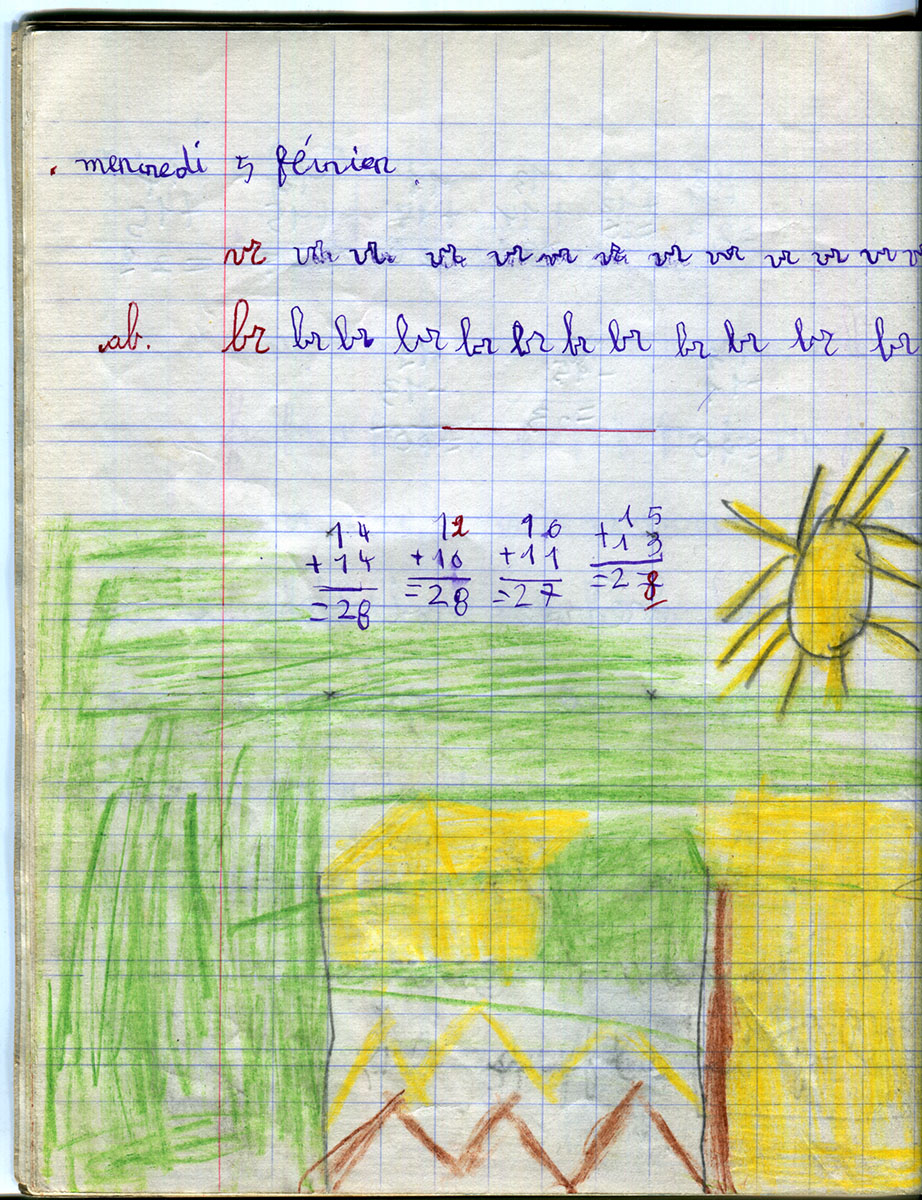 . mercredi 5 février.
vr vr vr vr vr vr vr vr vr vr vr vr
ab. br br br br br br br br br br br br
14 12 16 15
+14 +16 +11 +13
=28 =28 =27 =28